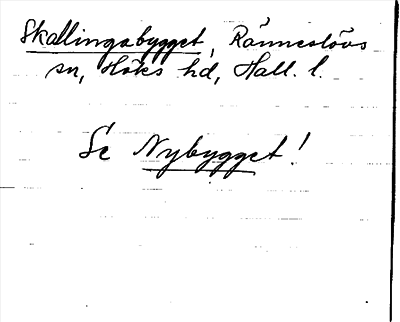 Skallingabygget, Ränneslövs
sn, Höks hd, Hall. l.
Se Nybygget!